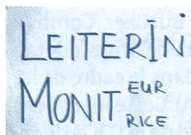 LEITERİN
MONITEUR
RICE